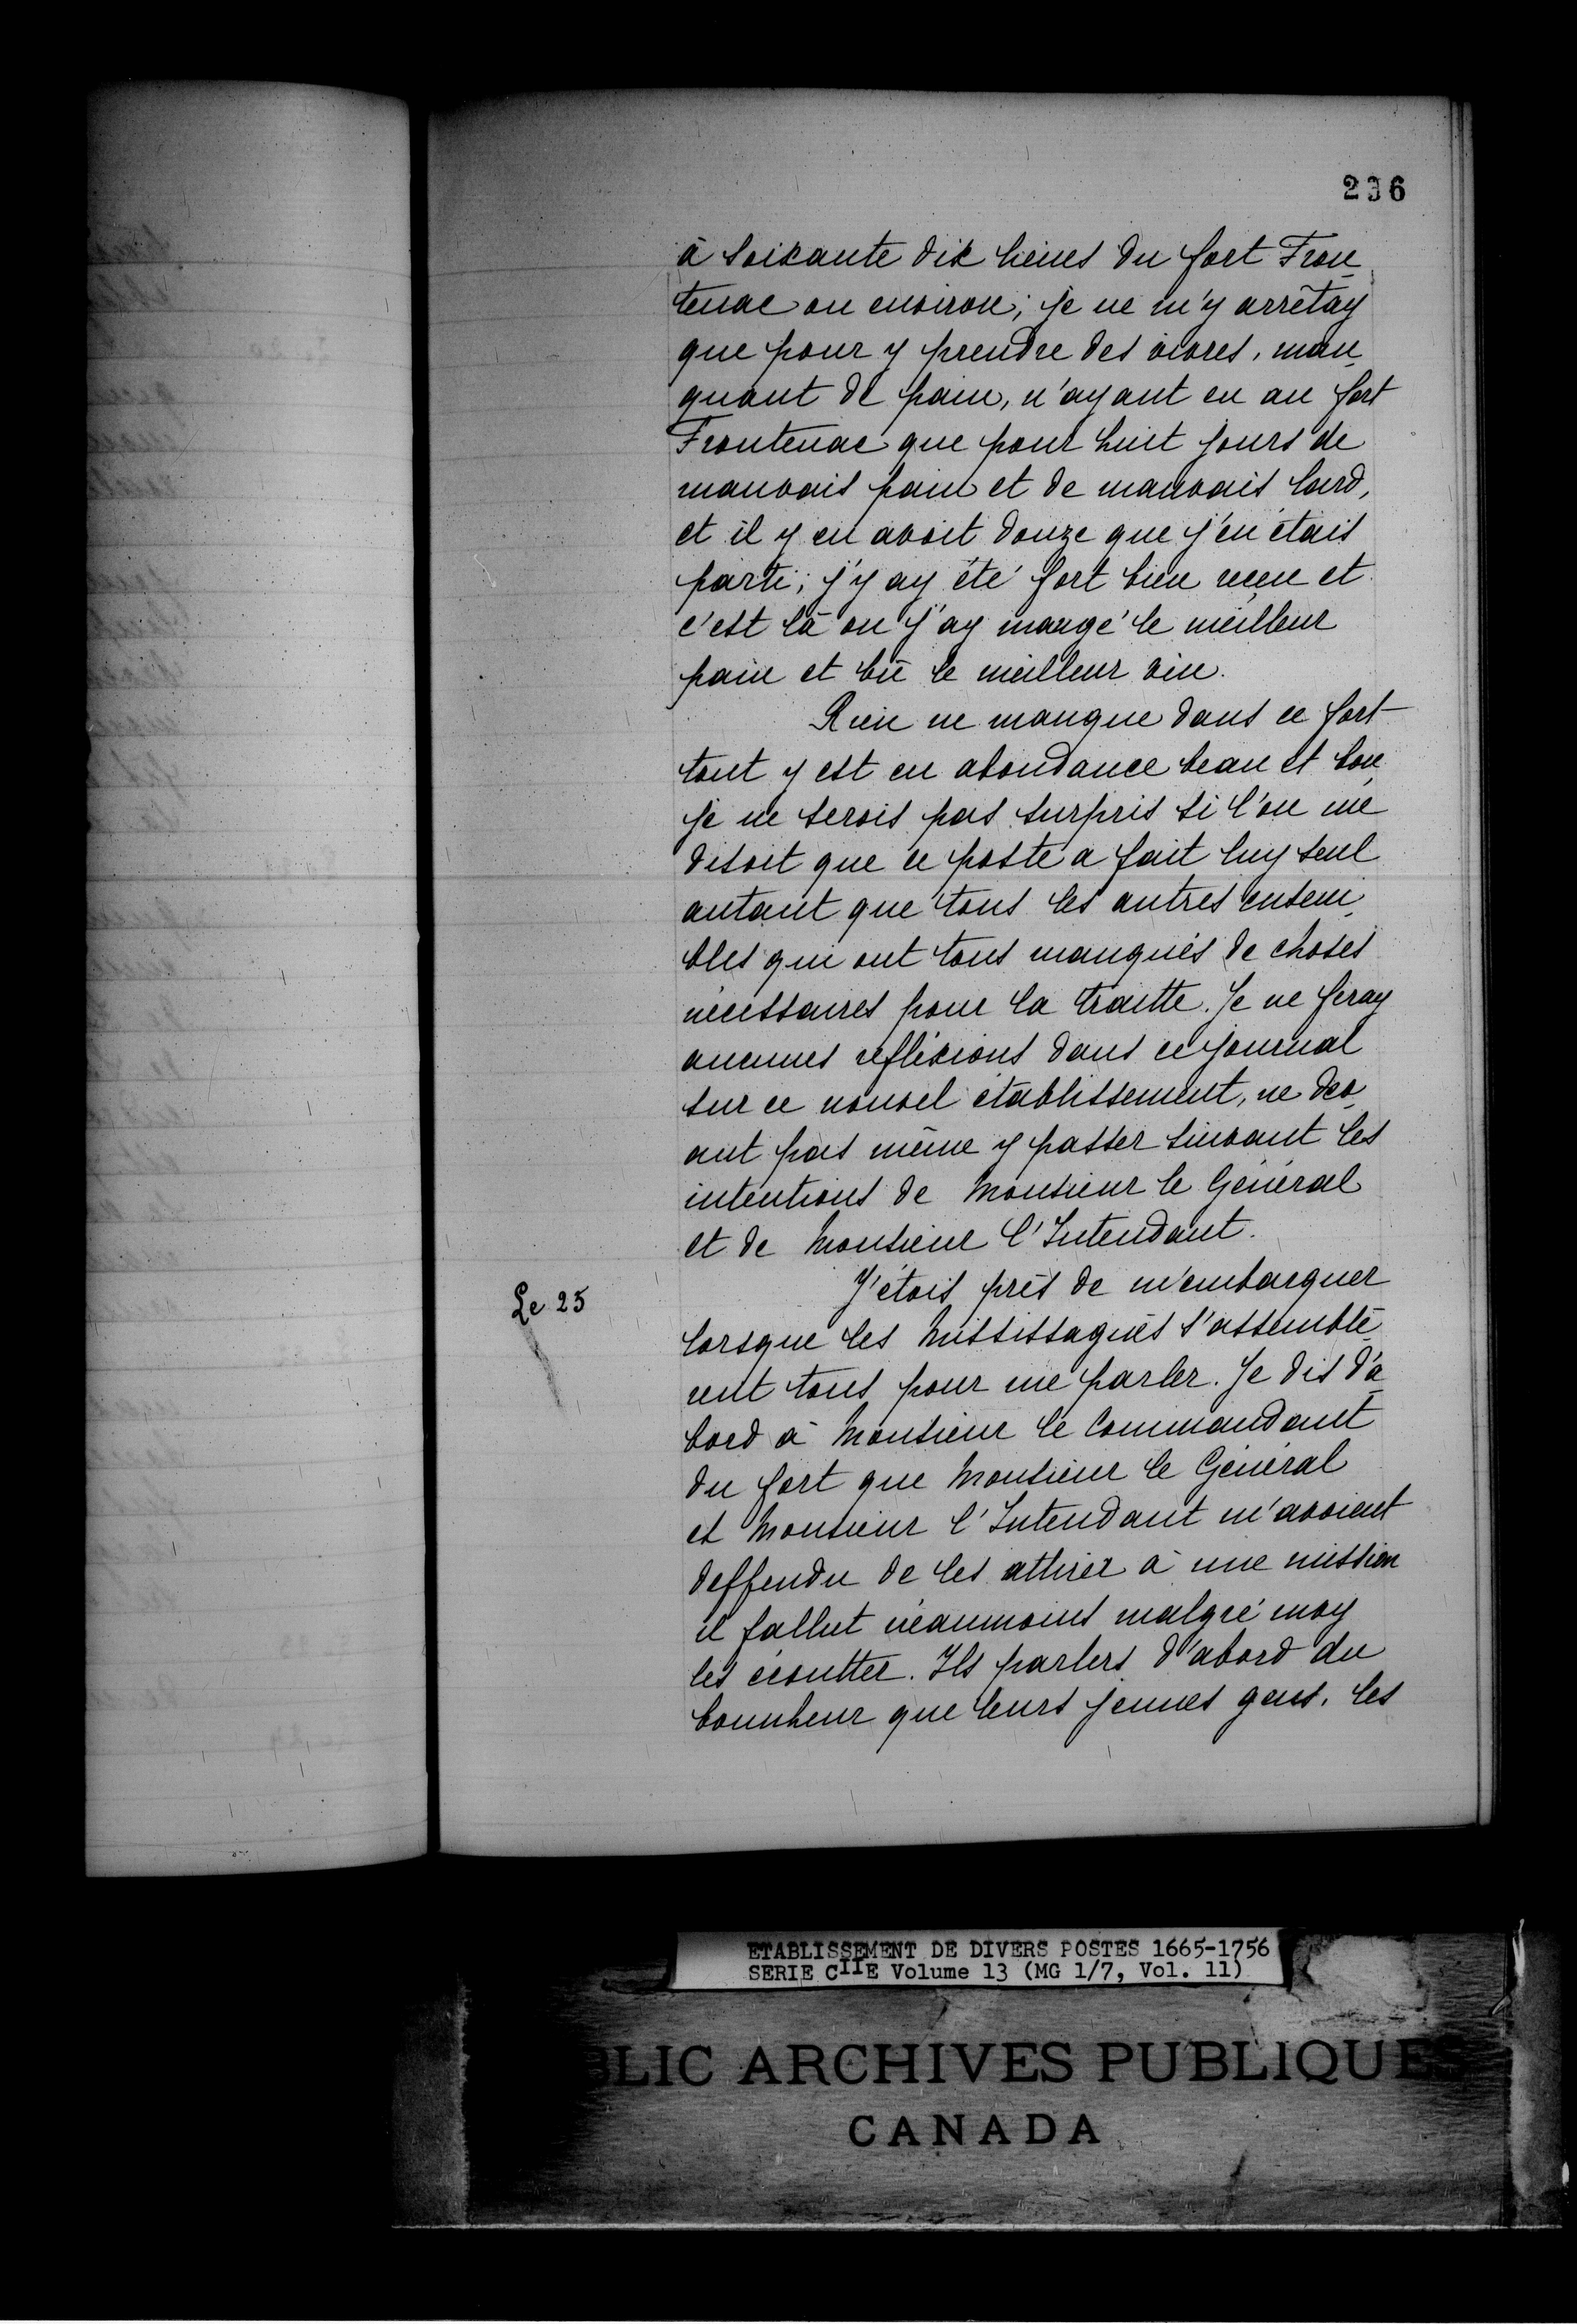 236
à soixante dix lieues du fort Fron-
tenac ou environ; je ne m'y arrêtay
que pour y prendre des vivres, man-
quant de pain, n'ayant eu au fort
Frontenac que pour huit jours de
mauvais pain et de mauvais lard,
et il y en avoit douze que j'en étais
parti; j'y ay été fort bien reçu et
c'est là ou j'ay mangé le meilleur
pain et bû le meilleur vin.
Rien ne manque dans ce fort
tout y est en abondance beau et bon,
je ne serois pas surpris si l'on me
disoit que ce poste a fait luy seul
autant que tous les autres ensem-
bles qui ont tous manqués de choses
nécessaires pour la traitte. Je ne feray
aucunes refléxions dans ce journal
sur ce nouvel établissement, ne dev-
ant pas même y passer suivant les
intentions de Monsieur le Général
et de Monsieur l'Intendant.
Le 25
J'étois prés de m'embarquer
lorsque les Mississagués s'assemblé-
rent tous pour me parler. Je dis d'a-
bord à Monsieur le Commandant
du fort que Monsieur le Général
et Monsieur l'Intendant m'avoient
deffendu de les attirer à une mission
il fallut néanmoins malgré moy
les écoutter. Ils parlers d'abord du
bounheur que leurs jeunes gens, les
ETABLISSEMENT DE DIVERS POSTES 1665-1756
SERIE CIIE Volume 13 (MG 1/7, Vol. 11)
BLIC ARCHIVES PUBLIQUES
CANADA